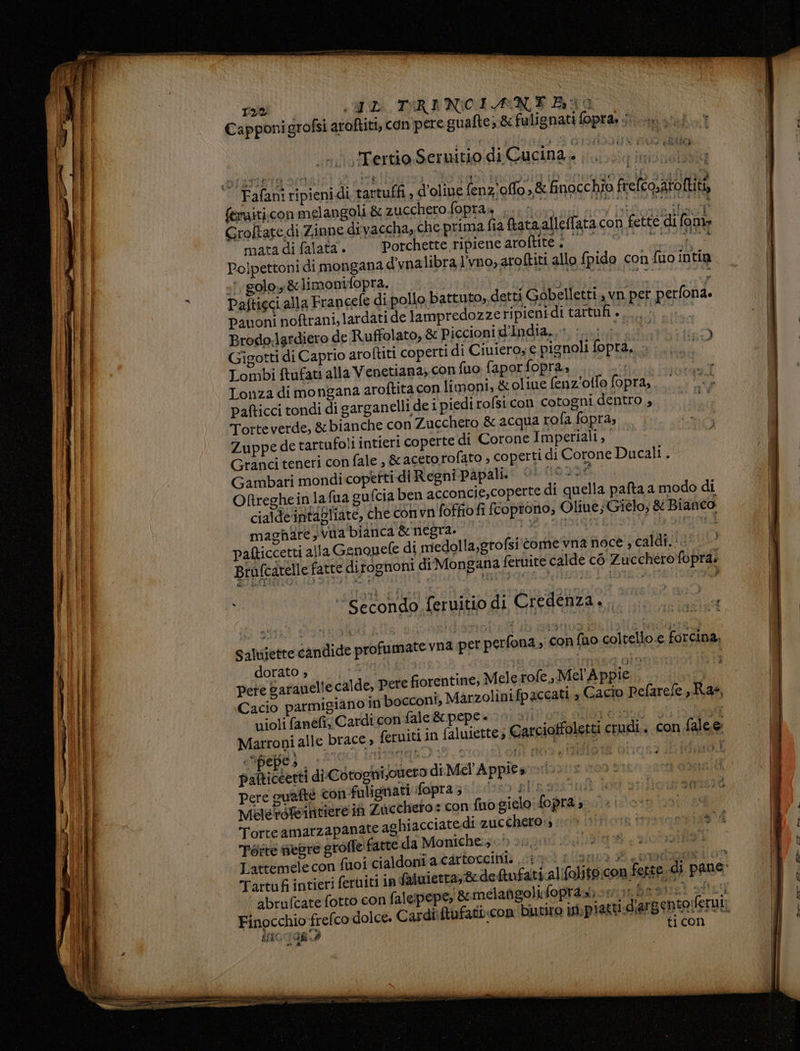 122 IL TRINCIANTE
Capponi grofsi aroftiti, con pere guafte, & fulignati fopra.
Tertio Seruitio di Cucina.
Fafani ripieni di tartuffi, d'oliue fenz'offo, & finocchio frefco, aroftiti,
feruiti con melangoli & zucchero fopra,
Croftate di Zinne di vaccha, che prima fia ftata alleffata con fette di fom-
mata di falata. Porchette ripiene aroftite.
Polpettoni di mongana d'vna libra l'vno, aroftiti allo fpido con fuo intin
golo, & limoni fopra.
Pafticci alla Francefe di pollo battuto, detti Gobelletti, vn per perfona.
Pauoni noftrani, lardati de lampredozze ripieni di tartufi.
Brodo lardiero de Ruffolato, & Piccioni d'India.
Gigotti di Caprio aroftiti coperti di Ciuiero, e pignoli fopra.
Lombi ftufati alla Venetiana, con fuo fapor fopra,
Lonza di mongana aroftita con limoni, & oliue fenz'offo fopra,
Pafticci tondi di garganelli de i piedi rofsi con cotogni dentro,
Torte verde, & bianche con Zucchero & acqua rofa fopra,
Zuppe de tartufoli intieri coperte di Corone Imperiali,
Granci teneri con fale, & aceto rofato, coperti di Corone Ducali.
Gambari mondi coperti di Regni Papali.
Oftreghe in la fua gufcia ben acconcie, coperte di quella pafta a modo di
cialde intagliate, che con vn foffio fi fcoprono, Oliue, Gielo, & Bianco
magnare, vua bianca & negra.
pafticcetti alla Genouefe di medolla, grofsi come vna noce, caldi.
Brufcatelle fatte di rognoni di Mongana feruite calde cõ Zucchero fopra.
Secondo feruitio di Credenza.
Saluiette candide profumate vna per perfona, con fuo coltello e forcina,
dorato,
Pere garauelle calde, Pere fiorentine, Mele rofe, Mel'Appie
Cacio parmigiano in bocconi, Marzolini fpaccati, Cacio Pefarefe, Ra-
uioli fanefi, Cardi con fale & pepe.
Marroni alle brace, feruiti in faluiette, Carcioffoletti crudi, con fale e
pepe,
Pafticcetti di Cotogni, ouero di Mel'Appie,
Pere guafte con fulignati fopra,
Mele rofe intiere in Zucchero: con fuo gielo fopra,
Torte amarzapanate aghiacciate di zucchero,
Torte negre groffe fatte da Moniche,
Lattemele con fuoi cialdoni a cartoccini.
Tartufi intieri feruiti in faluietta, & de ftufati al folito con fette di pane
abrufcate fotto con fale, pepe, & melangoli fopra,
Finocchio frefco dolce. Cardi ftufati con butiro in piatti d'argento ferui-
ti con